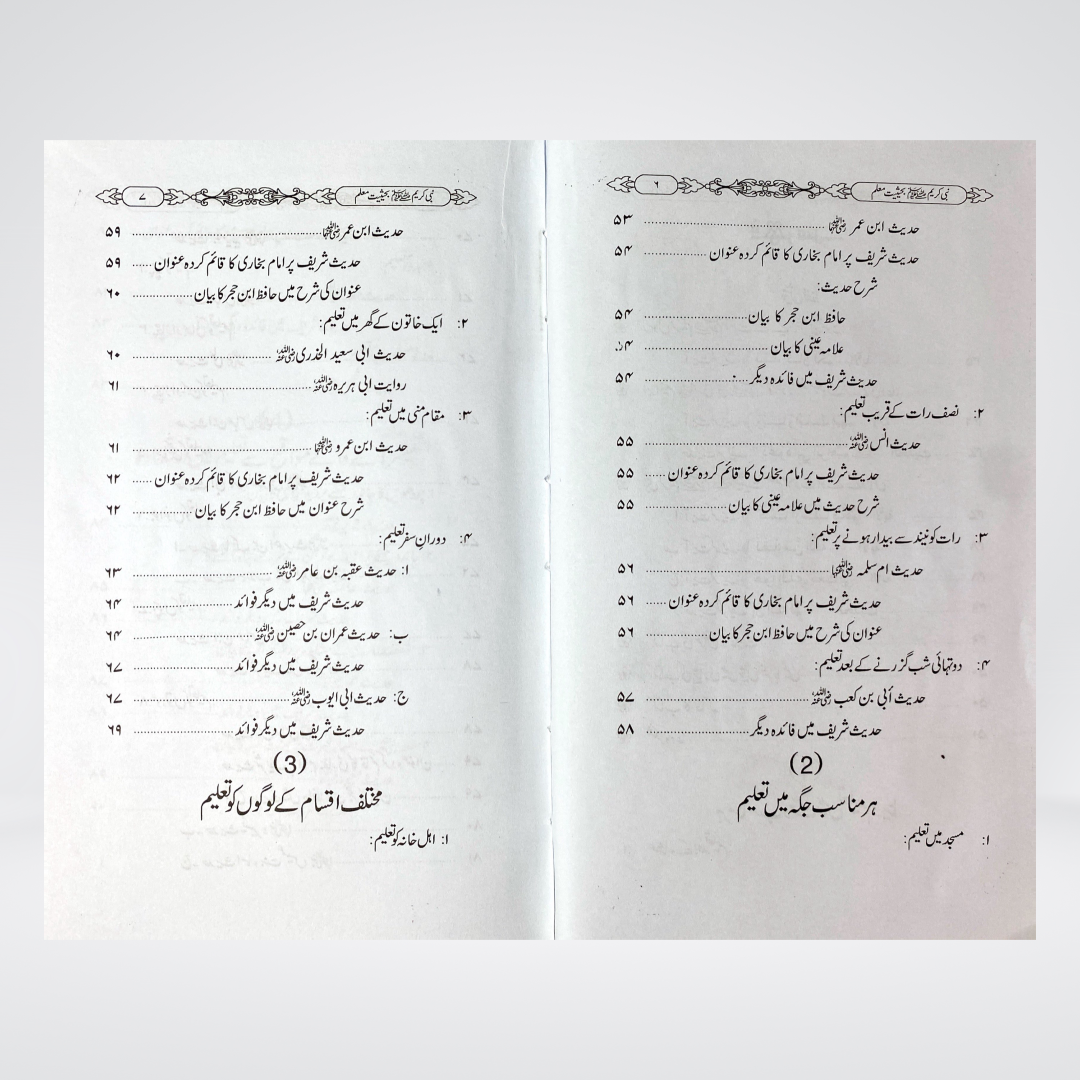 نبی کریم ﷺ بحیثیت معلم ۶
حدیث ابن عمر رضی اللہ عنہما ........ ۵۳
حدیث شریف پر امام بخاری کا قائم کردہ عنوان ........ ۵۴
شرح حدیث:
حافظ ابن حجر کا بیان ........ ۵۴
علامہ عینی کا بیان ........ ۵۴
حدیث شریف میں فائدہ دیگر ........ ۵۴
۲: نصف رات کے قریب تعلیم:
حدیث انس رضی اللہ عنہ ........ ۵۵
حدیث شریف پر امام بخاری کا قائم کردہ عنوان ........ ۵۵
شرح حدیث میں علامہ عینی کا بیان ........ ۵۵
۳: رات کو نیند سے بیدار ہونے پر تعلیم:
حدیث ام سلمہ رضی اللہ عنہا ........ ۵۶
حدیث شریف پر امام بخاری کا قائم کردہ عنوان ........ ۵۶
عنوان کی شرح میں حافظ ابن حجر کا بیان ........ ۵۶
۴: دو تہائی شب گزرنے کے بعد تعلیم:
حدیث أبی بن کعب رضی اللہ عنہ ........ ۵۷
حدیث شریف میں فائدہ دیگر ........ ۵۸
(2)
ہر مناسب جگہ میں تعلیم
۱: مسجد میں تعلیم:
نبی کریم ﷺ بحیثیت معلم ۷
حدیث ابن عمر رضی اللہ عنہما ........ ۵۹
حدیث شریف پر امام بخاری کا قائم کردہ عنوان ........ ۵۹
عنوان کی شرح میں حافظ ابن حجر کا بیان ........ ۶۰
۲: ایک خاتون کے گھر میں تعلیم:
حدیث ابی سعید الخدری رضی اللہ عنہ ........ ۶۰
روایت ابی ہریرہ رضی اللہ عنہ ........ ۶۱
۳: مقام منی میں تعلیم:
حدیث ابن عمرو رضی اللہ عنہما ........ ۶۱
حدیث شریف پر امام بخاری کا قائم کردہ عنوان ........ ۶۲
شرح عنوان میں حافظ ابن حجر کا بیان ........ ۶۲
۴: دورانِ سفر تعلیم:
ا: حدیث عقبہ بن عامر رضی اللہ عنہ ........ ۶۳
حدیث شریف میں دیگر فوائد ........ ۶۴
ب: حدیث عمران بن حصین رضی اللہ عنہ ........ ۶۴
حدیث شریف میں دیگر فوائد ........ ۶۷
ج: حدیث ابی ایوب رضی اللہ عنہ ........ ۶۷
حدیث شریف میں دیگر فوائد ........ ۶۹
(3)
مختلف اقسام کے لوگوں کو تعلیم
۱: اہل خانہ کو تعلیم: